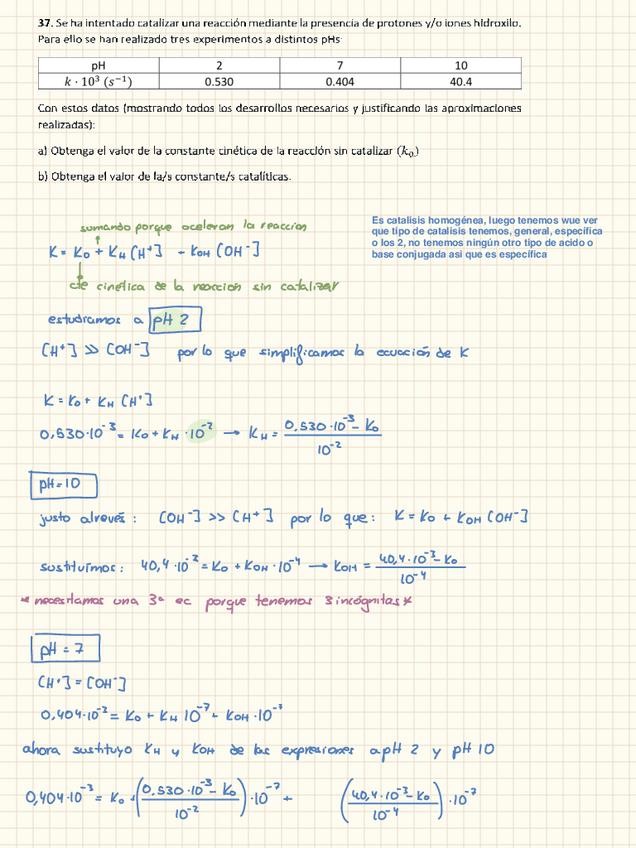 37. Se ha intentado catalizar una reacción mediante la presencia de protones y/o iones hidroxilo.
Para ello se han realizado tres experimentos a distintos pHs:
pH 2 7 10
k · 10³ (s⁻¹) 0.530 0.404 40.4
Con estos datos (mostrando todos los desarrollos necesarios y justificando las aproximaciones
realizadas):
a) Obtenga el valor de la constante cinética de la reacción sin catalizar (k₀)
b) Obtenga el valor de la/s constante/s catalíticas.
Es catalisis homogénea, luego tenemos wue ver
que tipo de catalisis tenemos, general, específica
o los 2, no tenemos ningún otro tipo de acido o
base conjugada asi que es específica
sumando porque aceleran la reaccion
K = K₀ + K_H [H⁺] + K_OH [OH⁻]
cte cinética de la reaccion sin catalizar
estudiamos a pH 2
[H⁺] >> [OH⁻] por lo que simplificamos la ecuación de K
K = K₀ + K_H [H⁺]
0,530·10⁻³ = K₀ + K_H · 10⁻² → K_H = (0,530·10⁻³ - K₀) / 10⁻²
pH=10
justo alrevés: [OH⁻] >> [H⁺] por lo que: K = K₀ + K_OH [OH⁻]
sustituimos: 40,4·10⁻³ = K₀ + K_OH · 10⁻⁴ → K_OH = (40,4·10⁻³ - K₀) / 10⁻⁴
* necesitamos una 3ª ec porque tenemos 3 incógnitas *
pH = 7
[H⁺] = [OH⁻]
0,404·10⁻³ = K₀ + K_H 10⁻⁷ + K_OH · 10⁻⁷
ahora sustituyo K_H y K_OH de las expresiones a pH 2 y pH 10
0,404·10⁻³ = K₀ + ((0,530·10⁻³ - K₀) / 10⁻²) · 10⁻⁷ + ((40,4·10⁻³ - K₀) / 10⁻⁴) · 10⁻⁷